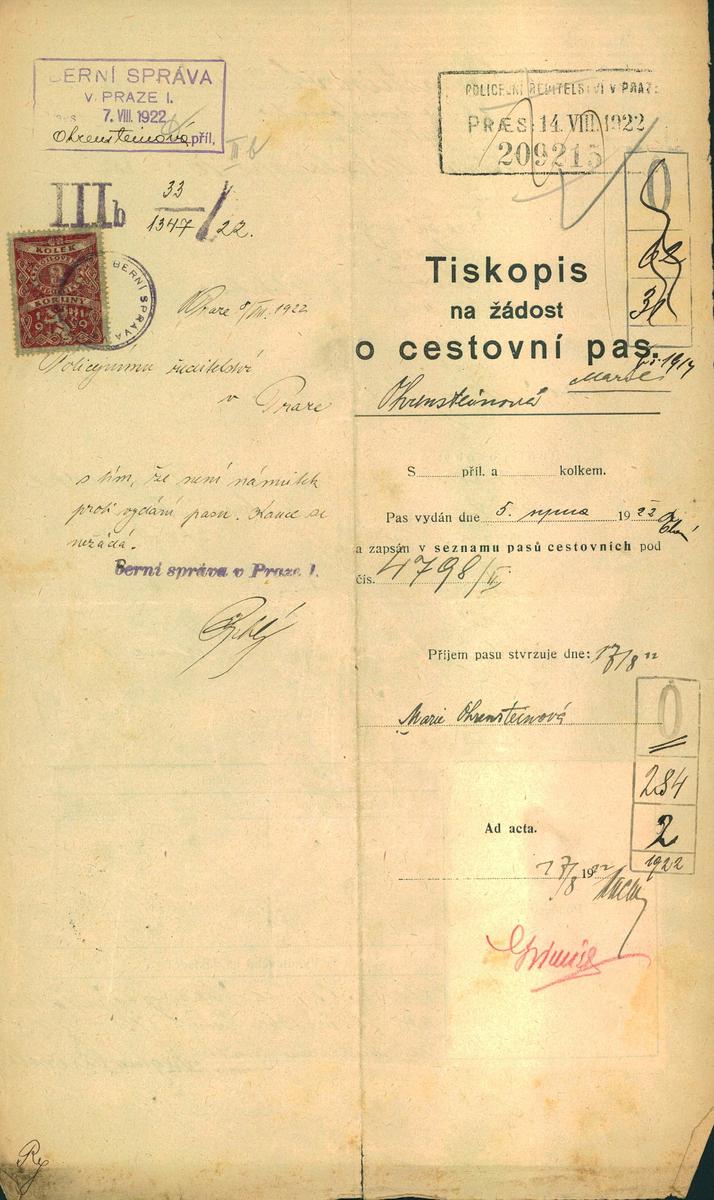 BERNÍ SPRÁVA
V PRAZE I.
7. VIII. 1922
Ohrensteinová příl,
IIIb 33
1347/22.
KOLEK
KORUNY
1919
BERNÍ SPRÁVA
Praze 8/VIII. 1922
Policejnímu ředitelství
v Praze
s tím, že není námitek
proti vydání pasu. Kauce se
nežádá.
Berní správa v Praze I.
Ry
POLICEJNÍ ŘEDITELSTVÍ V PRAZE
PRÆS: 14. VIII. 1922
209215
0
62
31
Tiskopis
na žádost
o cestovní pas.
1914
Marie
Ohrensteinová
S příl. a kolkem.
Pas vydán dne 5. srpna 1922
a zapsán v seznamu pasů cestovních pod
čís. 4798/II
Příjem pasu stvrzuje dne: 17/8 22
Marie Ohrensteinová
0
284
2
1922
Ad acta.
17/8 1922